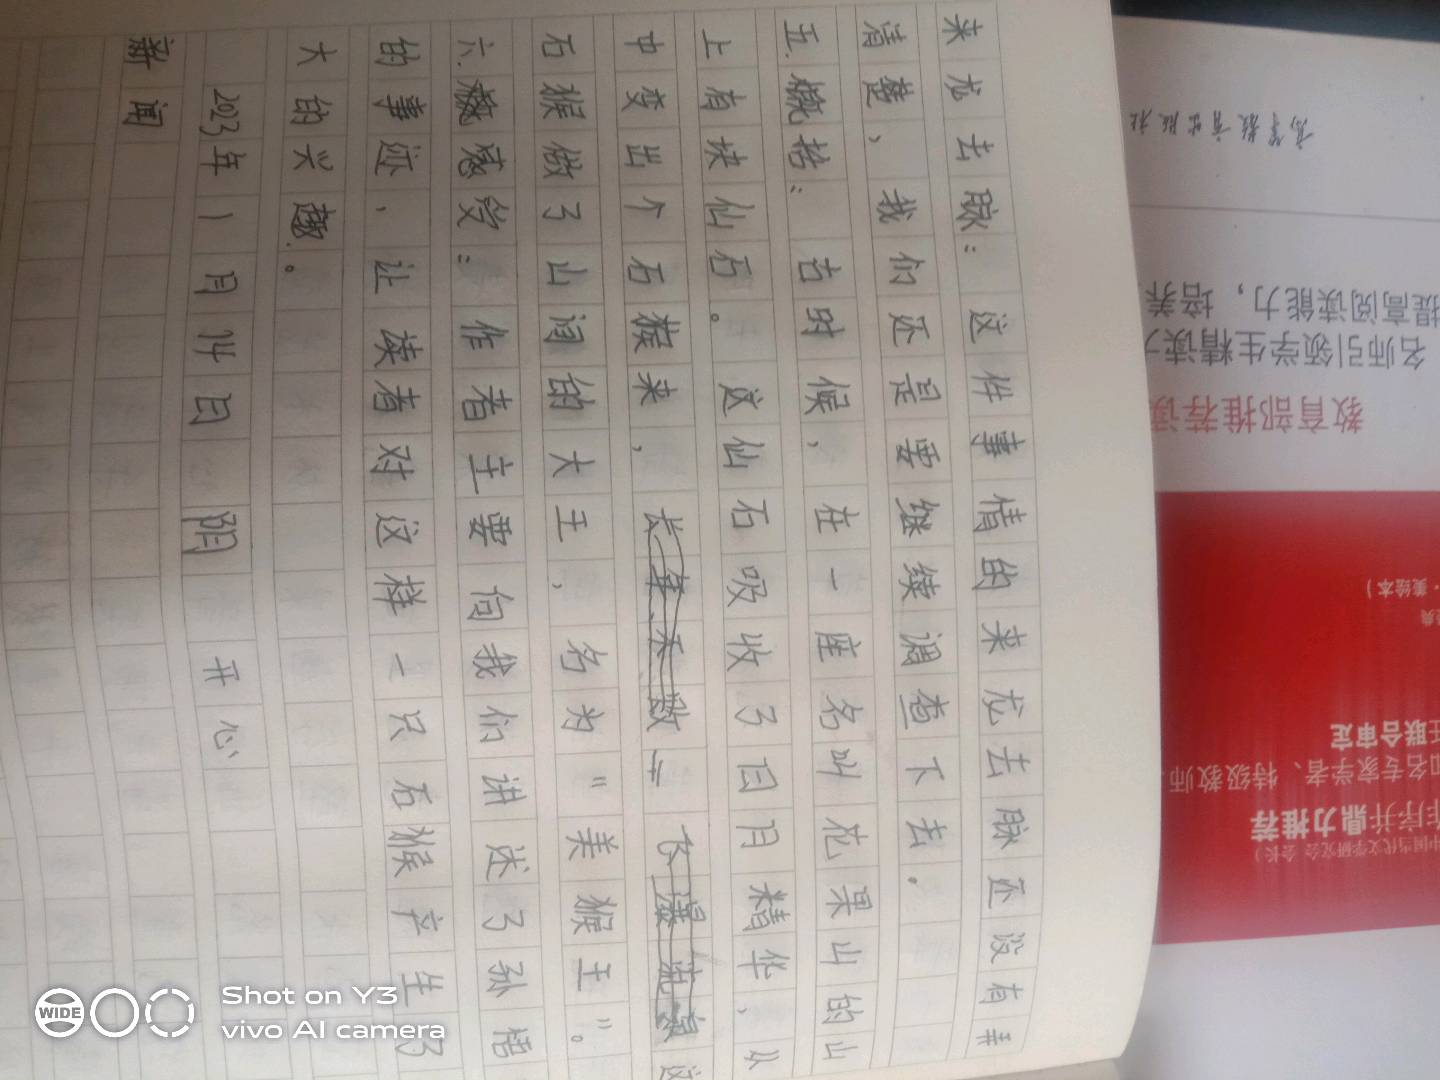 来龙去脉：这件事情的来龙去脉还没有弄
清楚，我们还是要继续调查下去。
五.概括：古时候，在一座名叫花果山的山
上有块仙石。这仙石吸收了日月精华，从
中变出个石猴来，
这
石猴做了山涧的大王，名为“美猴王”。
六.感受：作者主要向我们讲述了孙悟
的事迹，让读者对这样一只石猴产生了
大的兴趣。
2023年1月14日 阴 开心
新闻
高等教育出版社
提高阅读能力，培养
名师引领学生精读
教育部推荐
·美绘本）
联合审定
名专家学者、特级教师
作序并鼎力推荐
中国当代文学研究会 会长）
WIDE
Shot on Y3
vivo AI camera